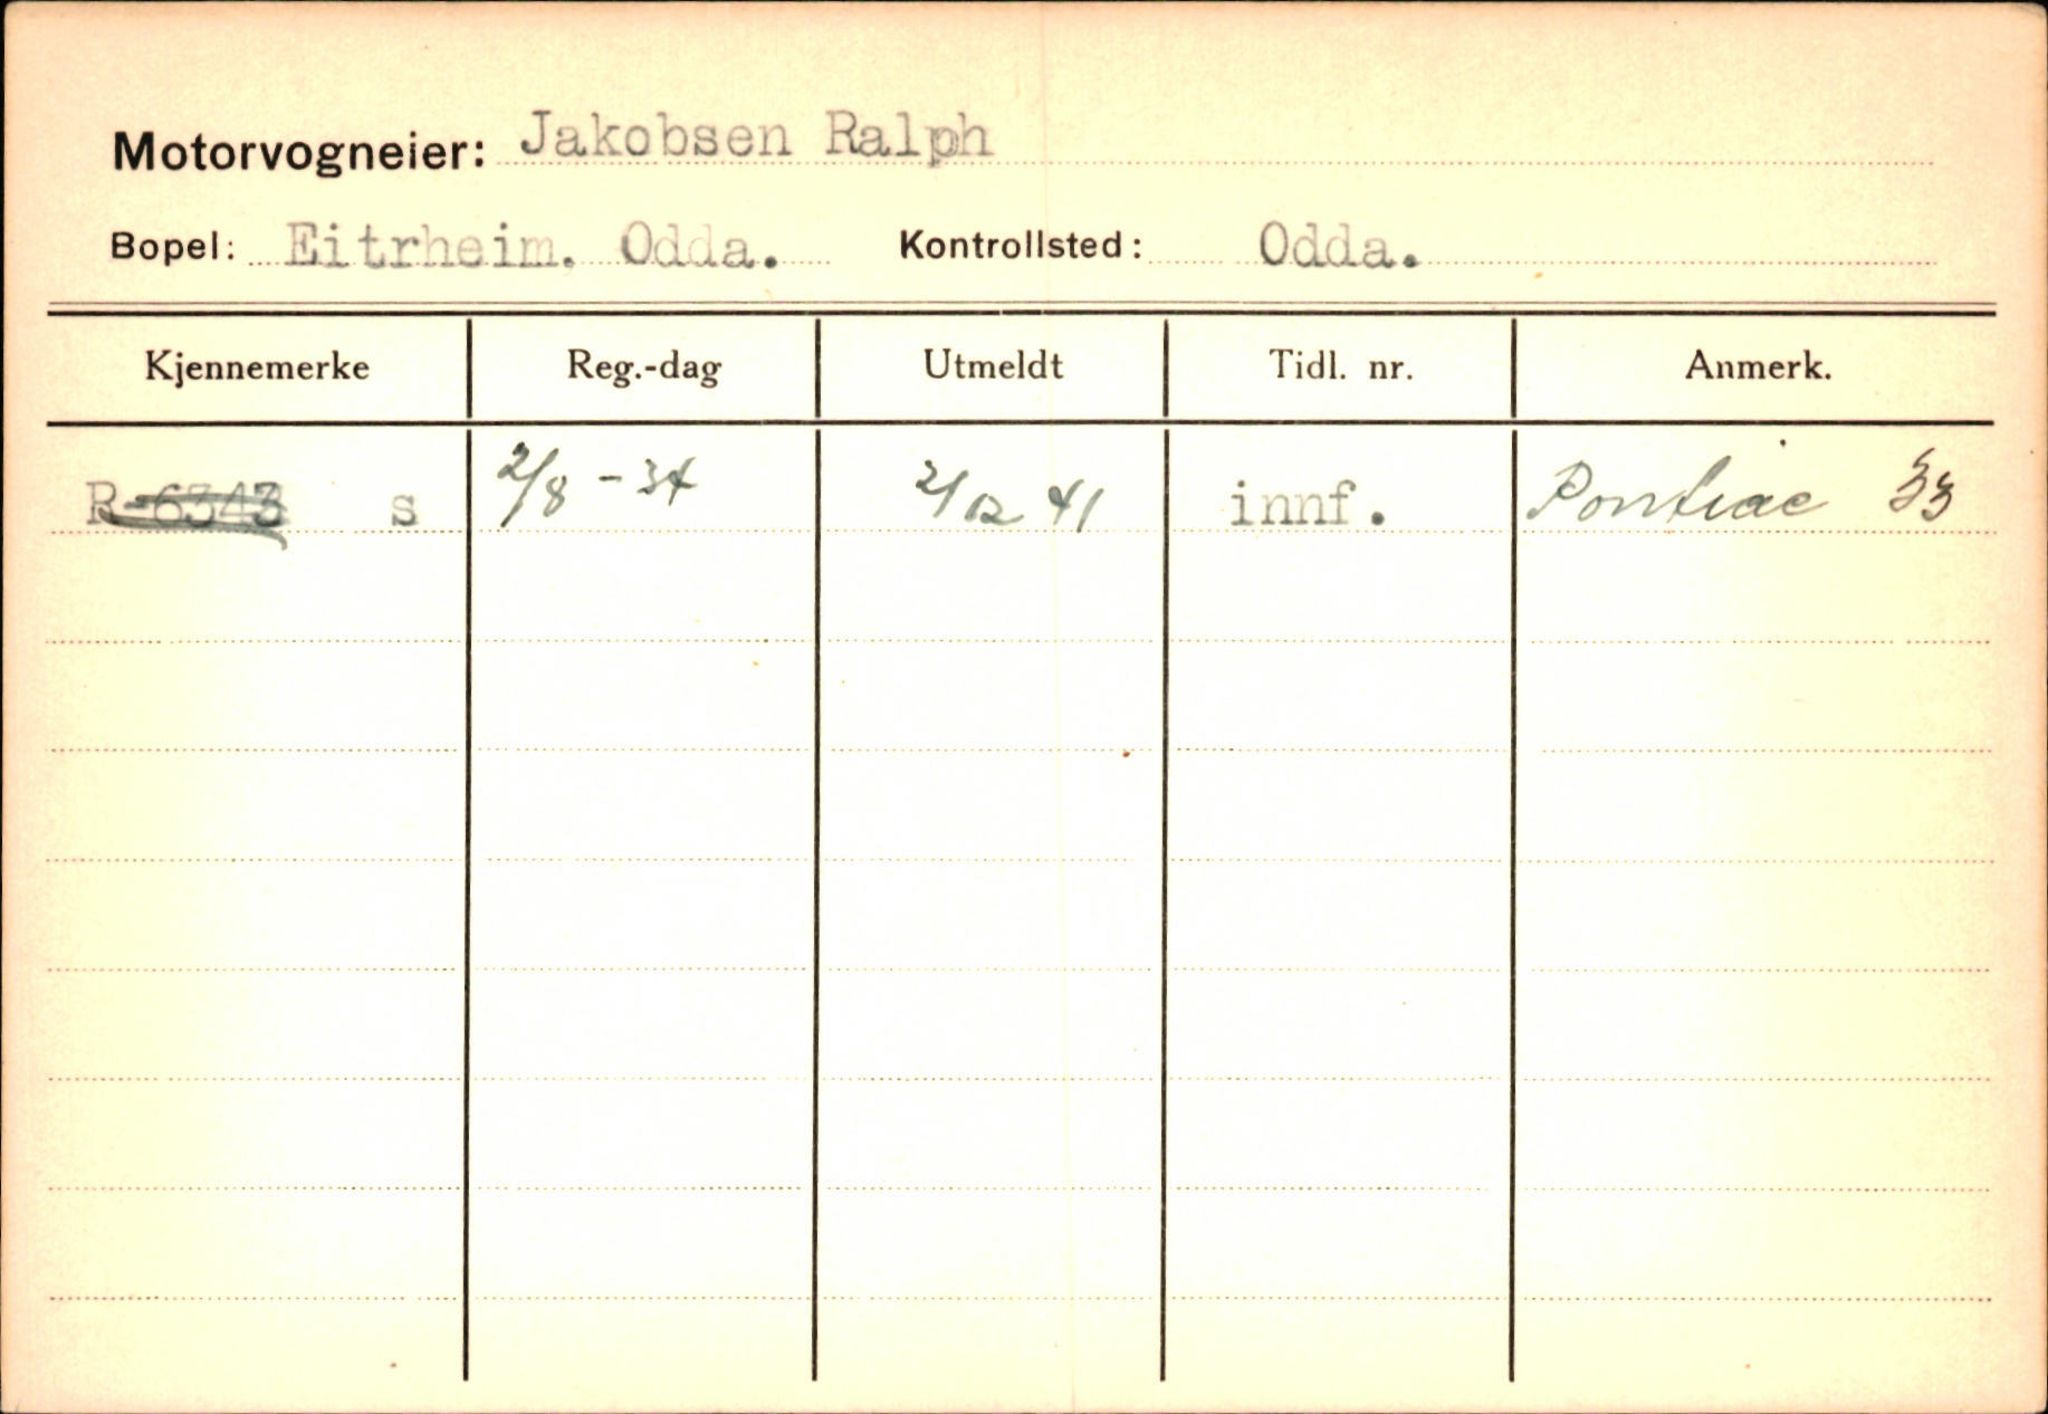 Motorvogneier: Jakobsen Ralph
Bopel: Eitrheim. Odda. Kontrollsted: Odda.
Kjennemerke Reg.-dag Utmeldt Tidl. nr. Anmerk.
R-6343 s 2/8 - 34 2/12 41 innf. Pontiac 33